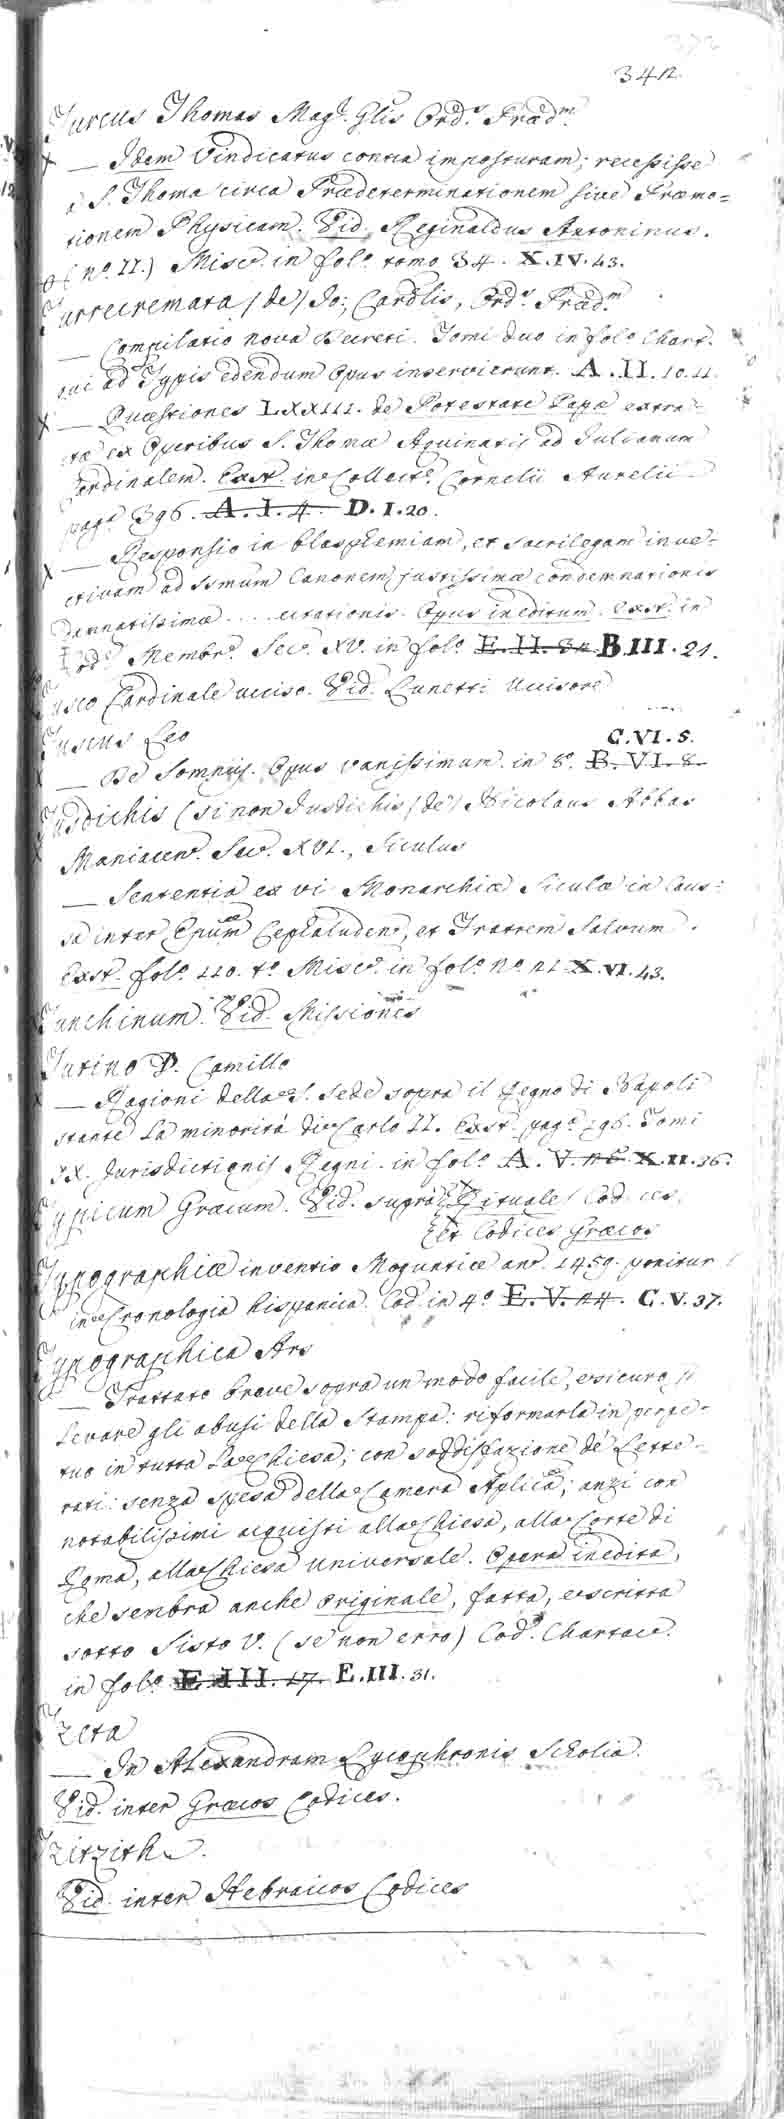 342.
Turcus Thomas Mag.r Glis Ord.s Præd.m
x — Idem Vindicatus contra imposturam; recessisse
a S. Thoma circa Prædeterminationem sive Præmo=
tionem Physicam. Vid. Reginaldus Antoninus.
(n.o II.) Misc. in fol.o tomo 34. X.IV.43.
Turrecremata (de) Jo; Cardlis, Ord.s Præd.m
— Compilatio nova Decreti. Tomi duo in fol.o Chart.
qui ad Typis edendum Opus inservierunt. A.II.10.11
x — Quæstiones LXXIII. de Potestate Papæ extra=
ctæ ex Operibus S. Thomæ Aquinatis ad Julianum
Cardinalem. Exst. in Collect. Cornelii Aurelii
pag.a 396. A.I.4. D.I.20.
x — Responsio in blasphemiam, et sacrilegam inve=
ctivam ad ssmum Canonem justissimæ condemnationis
damnatissimæ .... citationis. Opus ineditum. exst. in
Cod. Membr. Sec. XV. in fol.o E.II. B.III.21.
Tusco Cardinale ucciso. Vid. Lunetti Uccisore
Tuscus Leo
C.VI.5.
x — De Somnijs. Opus vanissimum. in 8.o B.VI.8.
Tusdichis (si non Jusdichis (de) Nicolaus Abbas
x Maniacen. Sec. XVI., Siculus
— Sententia ex vi Monarchiæ Siculæ in Caus=
sa inter Epum Cephaluden, et Fratrem Salvum.
Exst. fol.o 110. t.o Misc. in fol.o N.o 21 X.VI.43.
Tunchinum. Vid. Missiones
Tutino D. Camillo
x — Ragioni della S. Sede sopra il Regno di Napoli
stante la minorità di Carlo II. Exst. pag.a 196. Tomi
XX. Jurisdictionis Regni. in fol.o A.V. X.II.36.
Typicum Græcum. Vid. supra Rituale Codices.
et Codices Græcos
Typographiæ inventio Moguntiæ an. 1459. ponitur
in Cronologia hispanica Cod. in 4.o E.V.24. C.V.37.
Typographica Ars
— Trattato breve sopra un modo facile, e sicuro p
levare gli abusi della Stampa: riformarla in perpe=
tuo in tutta la Chiesa; con soddisfazione de' Lette=
rati: senza spesa della Camera Aplica; anzi con
notabilissimi acquisti alla Chiesa, alla Corte di
Roma, alla Chiesa Universale. Opera inedita,
che sembra anche originale, fatta, e scritta
sotto Sisto V. (se non erro) Cod. Chartac.
in fol.o E.III.17. E.III.31.
Tzeta
— In Alexandram Lycophronis Scholia.
Vid. inter Græcos Codices.
Tzitzith.
Vid. inter Hebraicos Codices